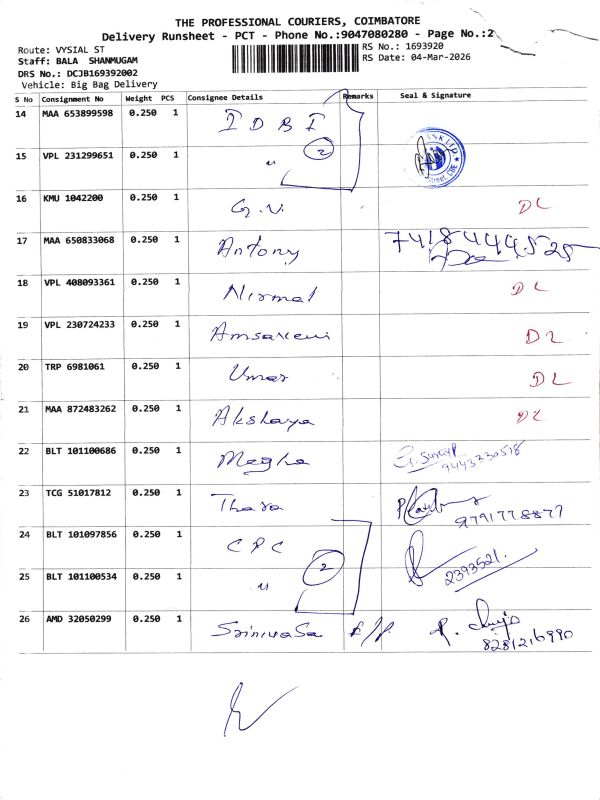 THE PROFESSIONAL COURIERS, COIMBATORE
Delivery Runsheet - PCT - Phone No.:9047080280 - Page No.:2
Route: VYSIAL ST
RS No.: 1693920
Staff: BALA SHANMUGAM
RS Date: 04-Mar-2026
DRS No.: DCJB169392002
Vehicle: Big Bag Delivery
S No Consignment No Weight PCS Consignee Details Remarks Seal & Signature
14 MAA 653899598 0.250 1 IDBI
15 VPL 231299651 0.250 1 " 2
16 KMU 1042200 0.250 1 G.V. DL
17 MAA 650833068 0.250 1 Antony 7418444525
18 VPL 408093361 0.250 1 Nirmal DL
19 VPL 230724233 0.250 1 DL
20 TRP 6981061 0.250 1 Umar DL
21 MAA 872483262 0.250 1 Akshaya DL
22 BLT 101100686 0.250 1 Megha 9443330518
23 TCG 51017812 0.250 1 Thara 9791778877
24 BLT 101097856 0.250 1 CPC
25 BLT 101100534 0.250 1 " 2 2393521.
26 AMD 32050299 0.250 1 Srinivasa 8281216990